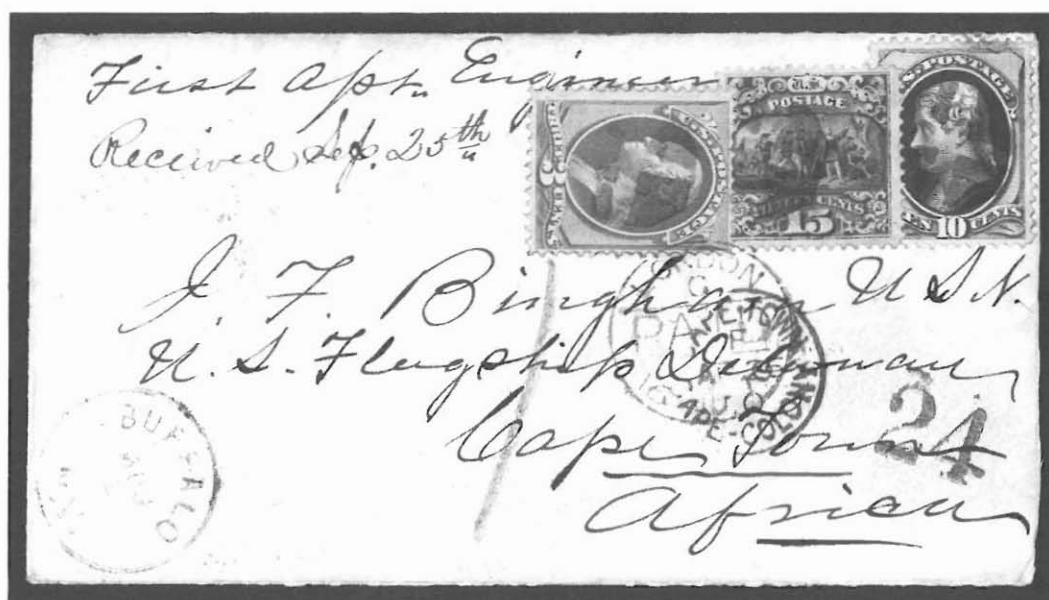 First Asst. Engineer
Received Sep. 25th
U.S. POSTAGE
U.S. POSTAGE
FIFTEEN CENTS
15
U.S. POSTAGE
TEN 10 CENTS
J. F. Bingham U S N.
U. S. Flagship Delawau
Cape Town
Africa
LONDON
PAID
CAPE-TOWN
CAPE-COLONY
24
BUFFALO